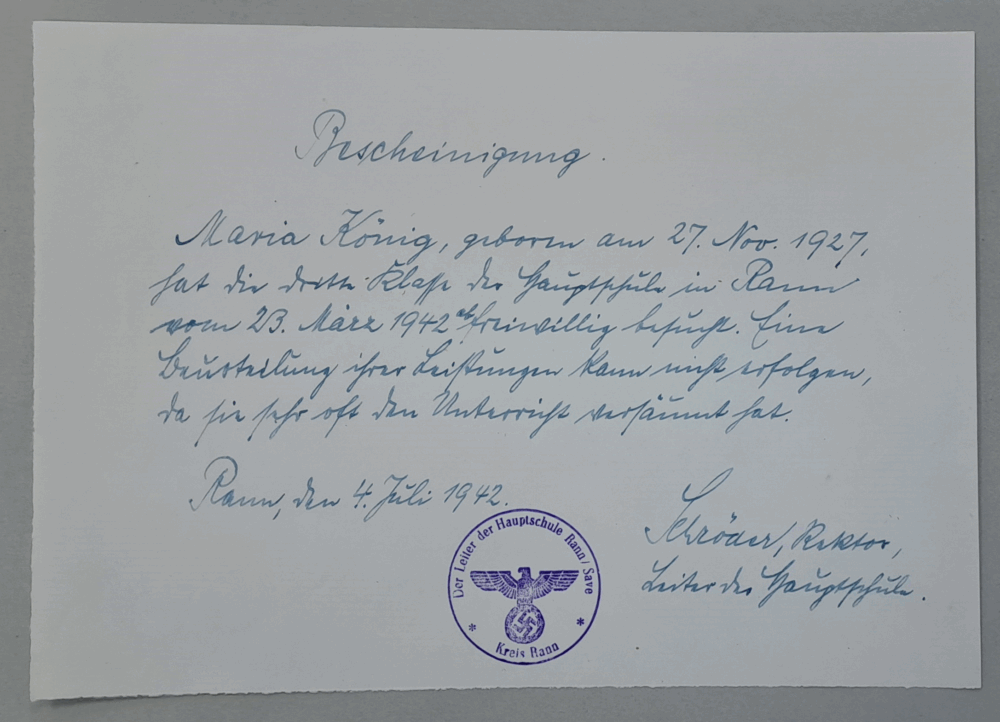 Bescheinigung.
Maria König, geboren am 27. Nov. 1927,
hat die dritte Klasse der Hauptschule in Rann
vom 23. März 1942 ab freiwillig besucht. Eine
Beurteilung ihrer Leistungen kann nicht erfolgen,
da sie sehr oft den Unterricht versäumt hat.
Rann, den 4. Juli 1942.
Schröder, Rektor,
Leiter der Hauptschule.
Der Leiter der Hauptschule Rann/Save
* Kreis Rann *